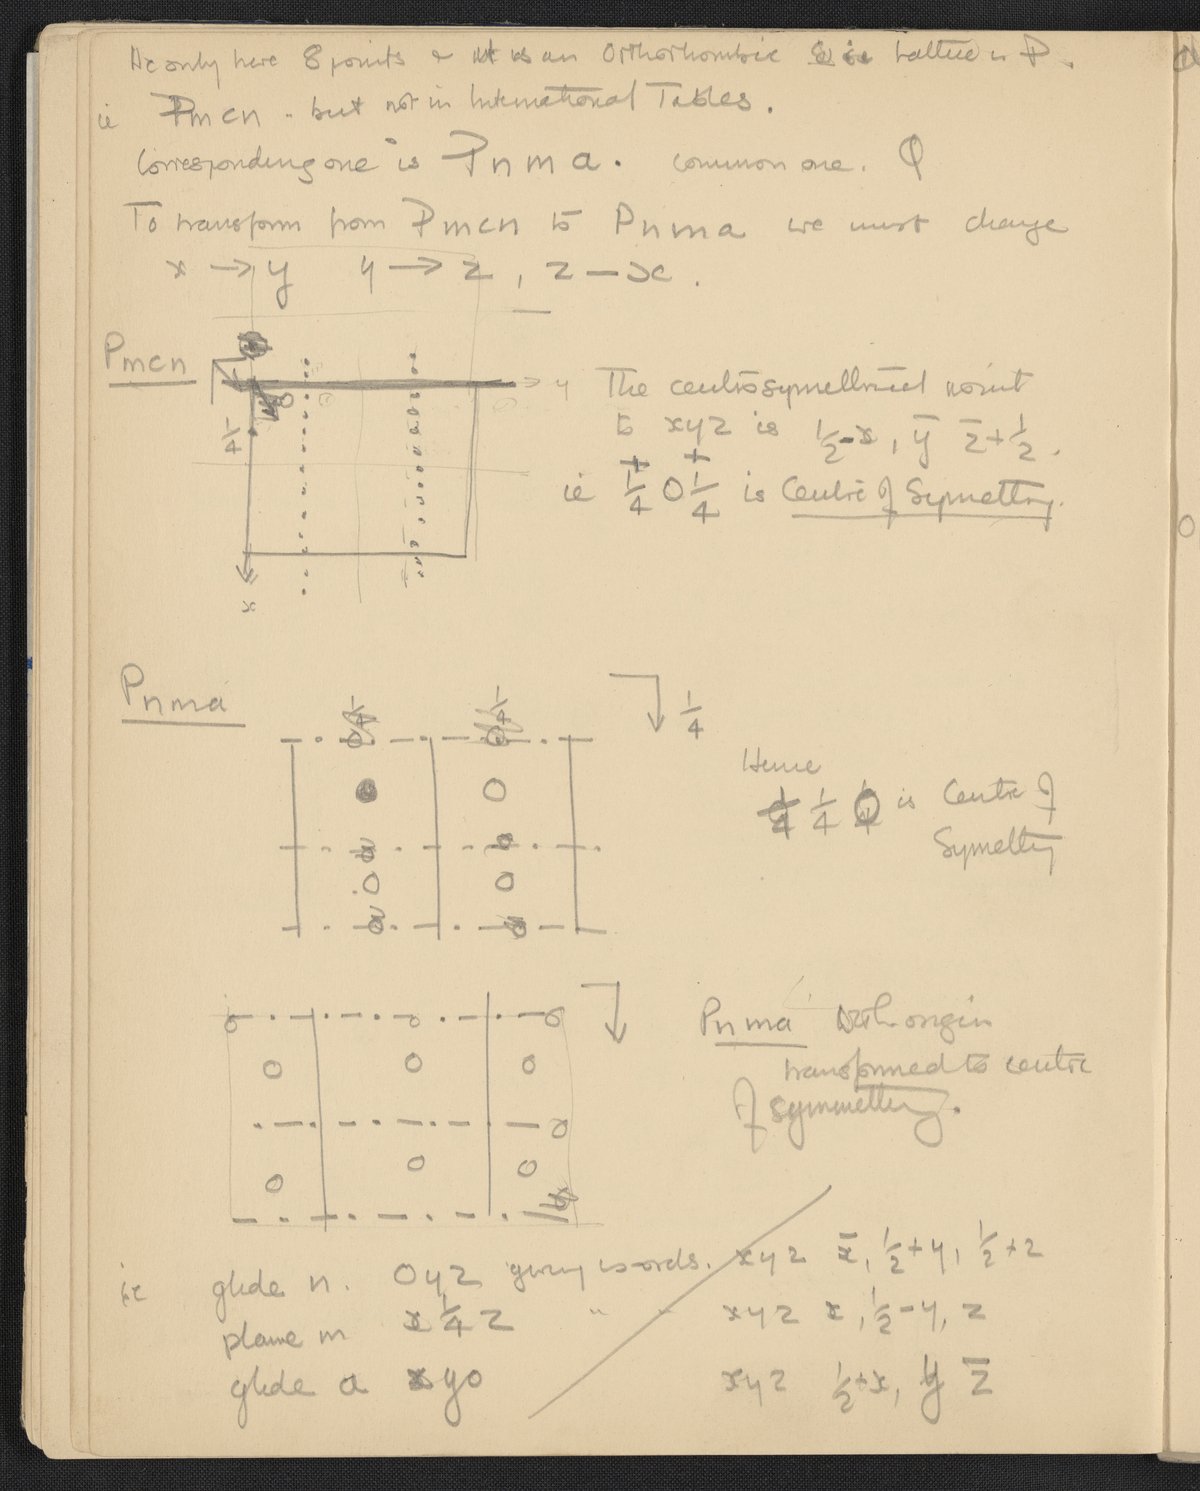 We only have 8 points & it is an Orthorhombic lattice is P.
ie Pmcn - but not in International Tables.
Corresponding one is Pnma. common one.
To transform from Pmcn to Pnma we must change
x → y y → z , z — x .
Pmcn
y
1/4
x
The centrosymettrical point
to xyz is 1/2-x, ȳ z̄+1/2.
ie 1/4 0 1/4 is Centre of Symettry.
Pnma
1/4 1/4 1/4
Hence
1/4 1/4 0 is Centre of
Symettry
Pnma with origin
transformed to centre
of symmettry.
ie glide n. 0yz giving coords. xyz x̄, 1/2+y, 1/2+z
plane m x 1/4 z " " xyz x, 1/2-y, z
glide a xy0 xyz 1/2+x, y z̄